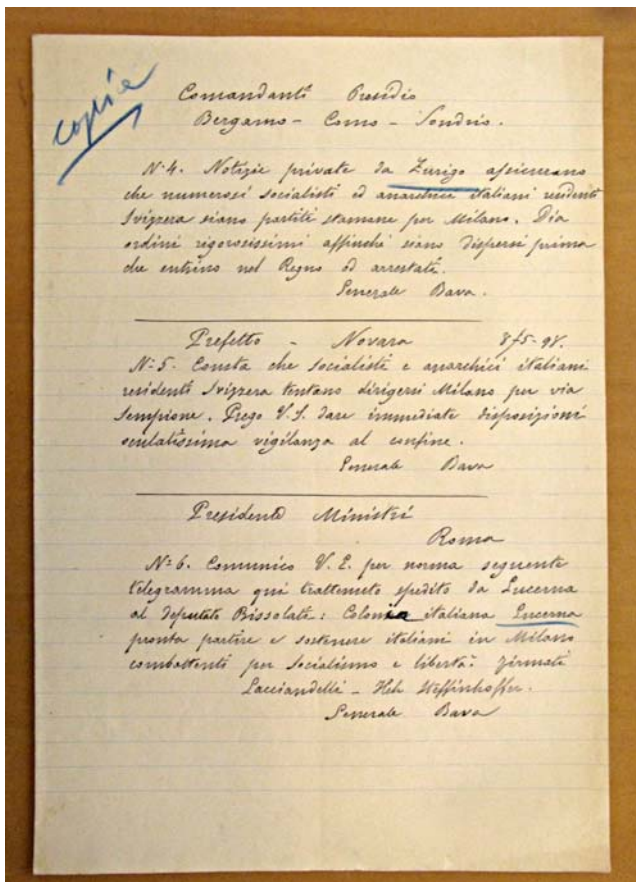 copia
Comandanti Presidio
Bergamo - Como - Sondrio.
N. 4. Notizie private da Zurigo assicurano
che numerosi socialisti ed anarchici italiani residenti
Svizzera siano partiti stamane per Milano. Dia
ordini rigorosissimi affinchè siano dispersi prima
che entrino nel Regno od arrestati.
Generale Bava.
Prefetto - Novara 8/5-98.
N. 5. Consta che socialisti e anarchici italiani
residenti Svizzera tentano dirigersi Milano per via
Sempione. Prego V.S. dare immediate disposizioni
oculatissima vigilanza al confine.
Generale Bava
Presidente Ministri
Roma
N. 6. Comunico V. E. per norma seguente
telegramma qui trattenuto spedito da Lucerna
al deputato Bissolati: Colonia italiana Lucerna
pronta partire e sostenere italiani in Milano
combattenti per socialismo e libertà: firmati
Generale Bava